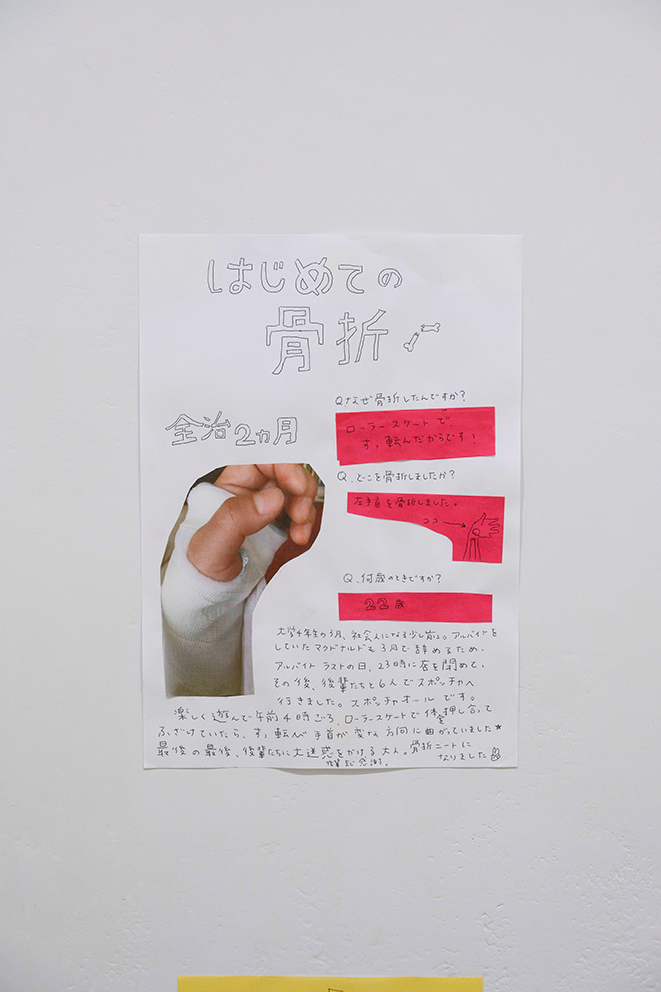 はじめての
骨折
全治2ヵ月
Q.なぜ骨折したんですか?
ローラースケートで、
すっ転んだからです!
Q.どこを骨折しましたか?
左手首を骨折しました。
ココ
Q.何歳のときですか?
22歳
大学4年生の3月、社会人になる少し前。アルバイトを
していたマクドナルドも3月で辞めるため、
アルバイトラストの日、23時に店を閉めて、
その後、後輩たちと6人でスポッチャへ
行きました。スポッチャオールです。
楽しく遊んで午前4時ごろ、ローラースケートで押し合って
ふざけていたら、すっ転んで手首が変な方向に曲がっていました★
最後の最後、後輩たちに大迷惑をかける大人。骨折ニートに
なりました